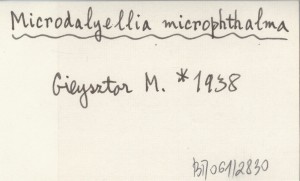 Microdalyellia microphthalma
Gieysztor M. * 1938
BT/061/2830